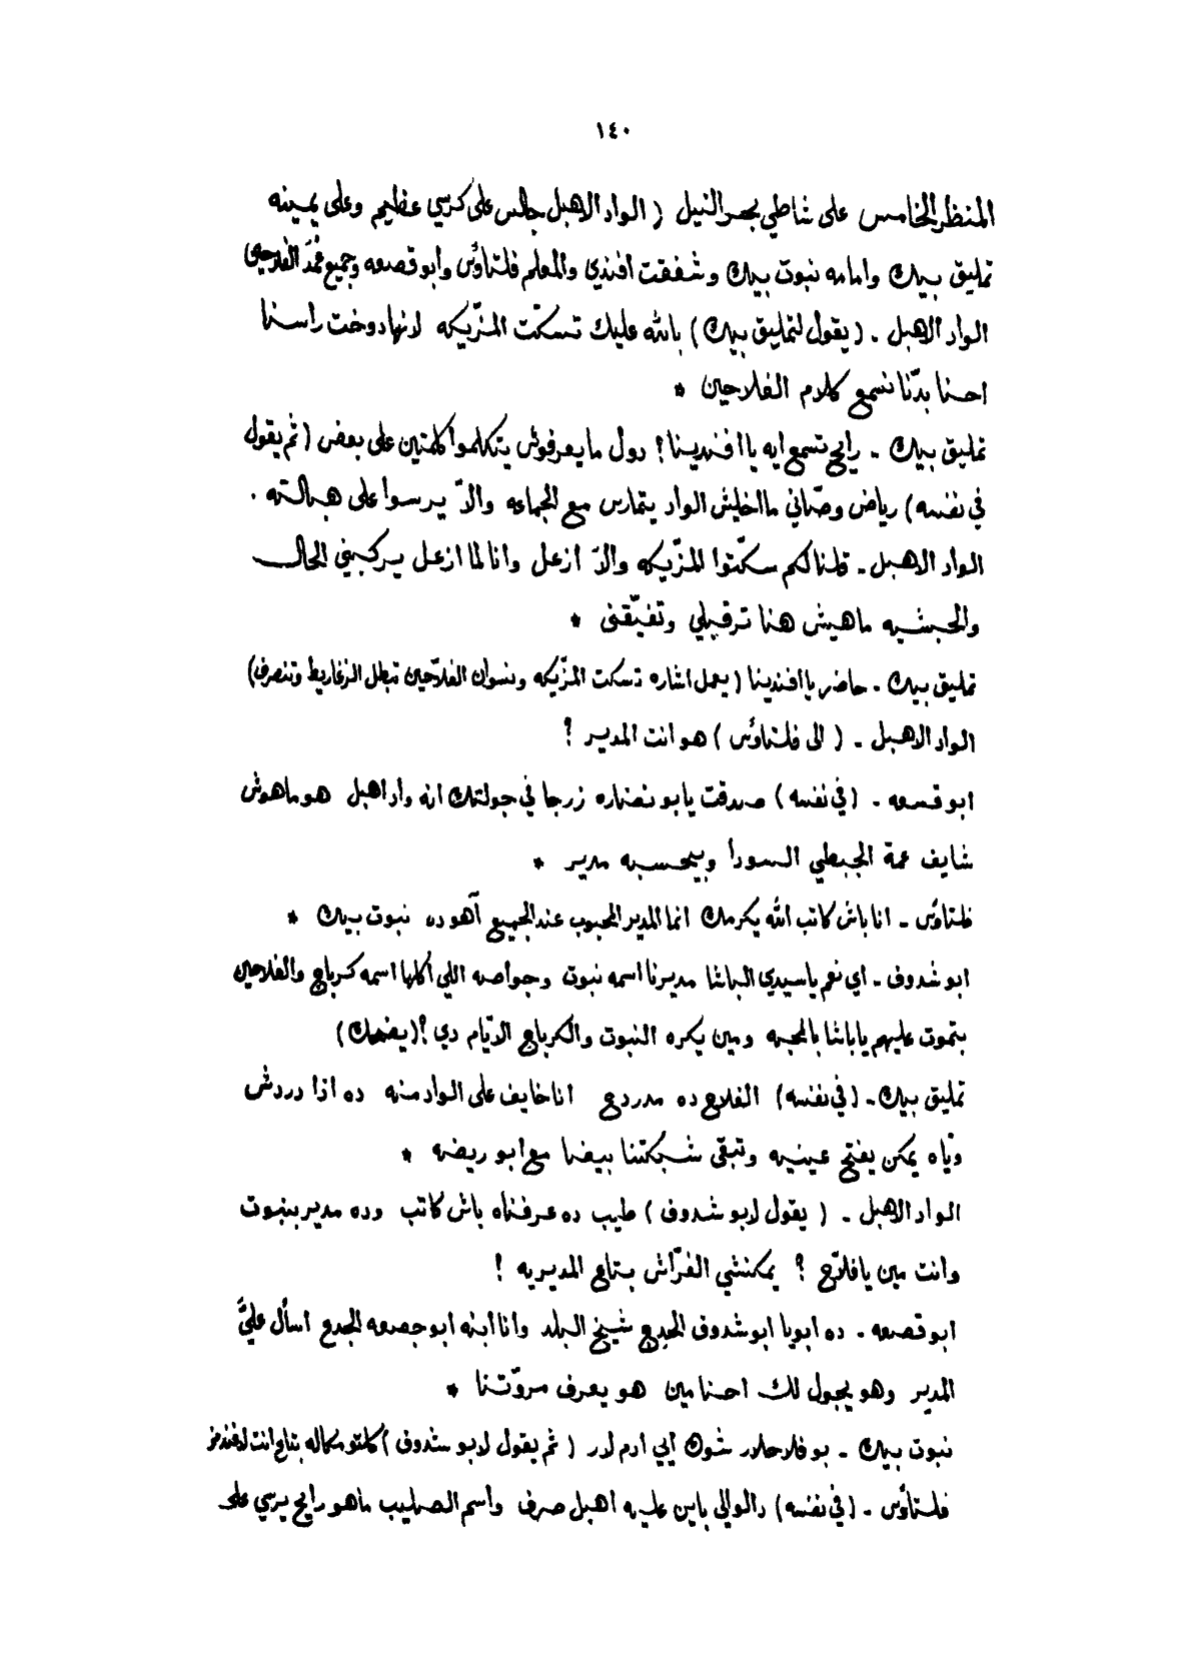 ١٤٠
المنظر الخامس على شاطي بحر النيل ( الواد الاهبل جالس على كرسي عظيم وعلى يمينه
تمليق بيك وامامه نبوت بيك وشفقت افندي والمعلم فلتاؤس وأبو قصعه وجميع عُمَد الفلاحين
الواد الاهبل . ( يقول لتمليق بيك ) بالله عليك تسكّت المزّيكه لانها دوخت راسنا
احنا بدّنا نسمع كلام الفلاحين *
تمليق بيك . رايح تسمع ايه يا افندينا ؟ دول ما يعرفوش يتكلموا كلمتين على بعض ( ثم يقول
في نفسه ) رياض وصّاني ما اخليش الواد يتمارس مع الجماعه والاّ يرسوا على هبالته .
الواد الاهبل . قلنا لكم سكّتوا المزّيكه والاّ ازعل وانا لما ازعل يركبني الحال
والحبشيه ماهيش هنا ترقيلي وتفيّقنى *
تمليق بيك . حاضر يا افندينا ( يعمل اشاره تسكت المزّيكه ونسوان الفلاّحين تبطل الزغاريط وتنصرف )
الواد الاهبل . ( الى فلتاؤس ) هو انت المدير ؟
ابو قصعه . ( في نفسه ) صدقت يا بو نضاره زرجا في جولتك انه واد اهبل هو ماهوش
شايف عمة الجبطي السودا وبيحسبه مدير *
فلتاؤس . انا باش كاتب الله يكرمك انما المدير المحبوب عند الجميع آهو ده نبوت بيك *
ابو شدوف . اي نعم يا سيدي الباشا مديرنا اسمه نبوت وجواصه اللي أكلها اسمه كرباج والفلاحين
بتموت عليهم يا باشا بالمحبه ومين يكره النبوت والكرباج الايّام دي ؟ ( يضحك )
تمليق بيك . ( في نفسه ) الفلاح ده مدردح انا خايف على الواد منه ده اذا دردش
ويّاه يمكن يفتح عينيه وتبقى شبكتنا بيضا مع ابو ريضه *
الواد الاهبل . ( يقول لابو شدوف ) طيب ده عرفناه باش كاتب وده مدير بنبوت
وانت مين يا فلاّح ؟ يمكنشي الفرّاش بتاع المديريه !
ابو قصعه . ده ابويا ابو شدوف الجدع شيخ البلد وانا ابنه ابو جصعه الجدع اسأل عليَّ
المدير وهو يجول لك احنا مين هو يعرف مروّتنا *
نبوت بيك . بو فلاحلار شوك ايي ادم لدر ( ثم يقول لابو شدوف ) كلتو مكاله بتاع انت لافندمز
فلتاؤس . ( في نفسه ) دالوالي باين عليه اهبل صرف واسم الصليب ماهو رايح يرسي على